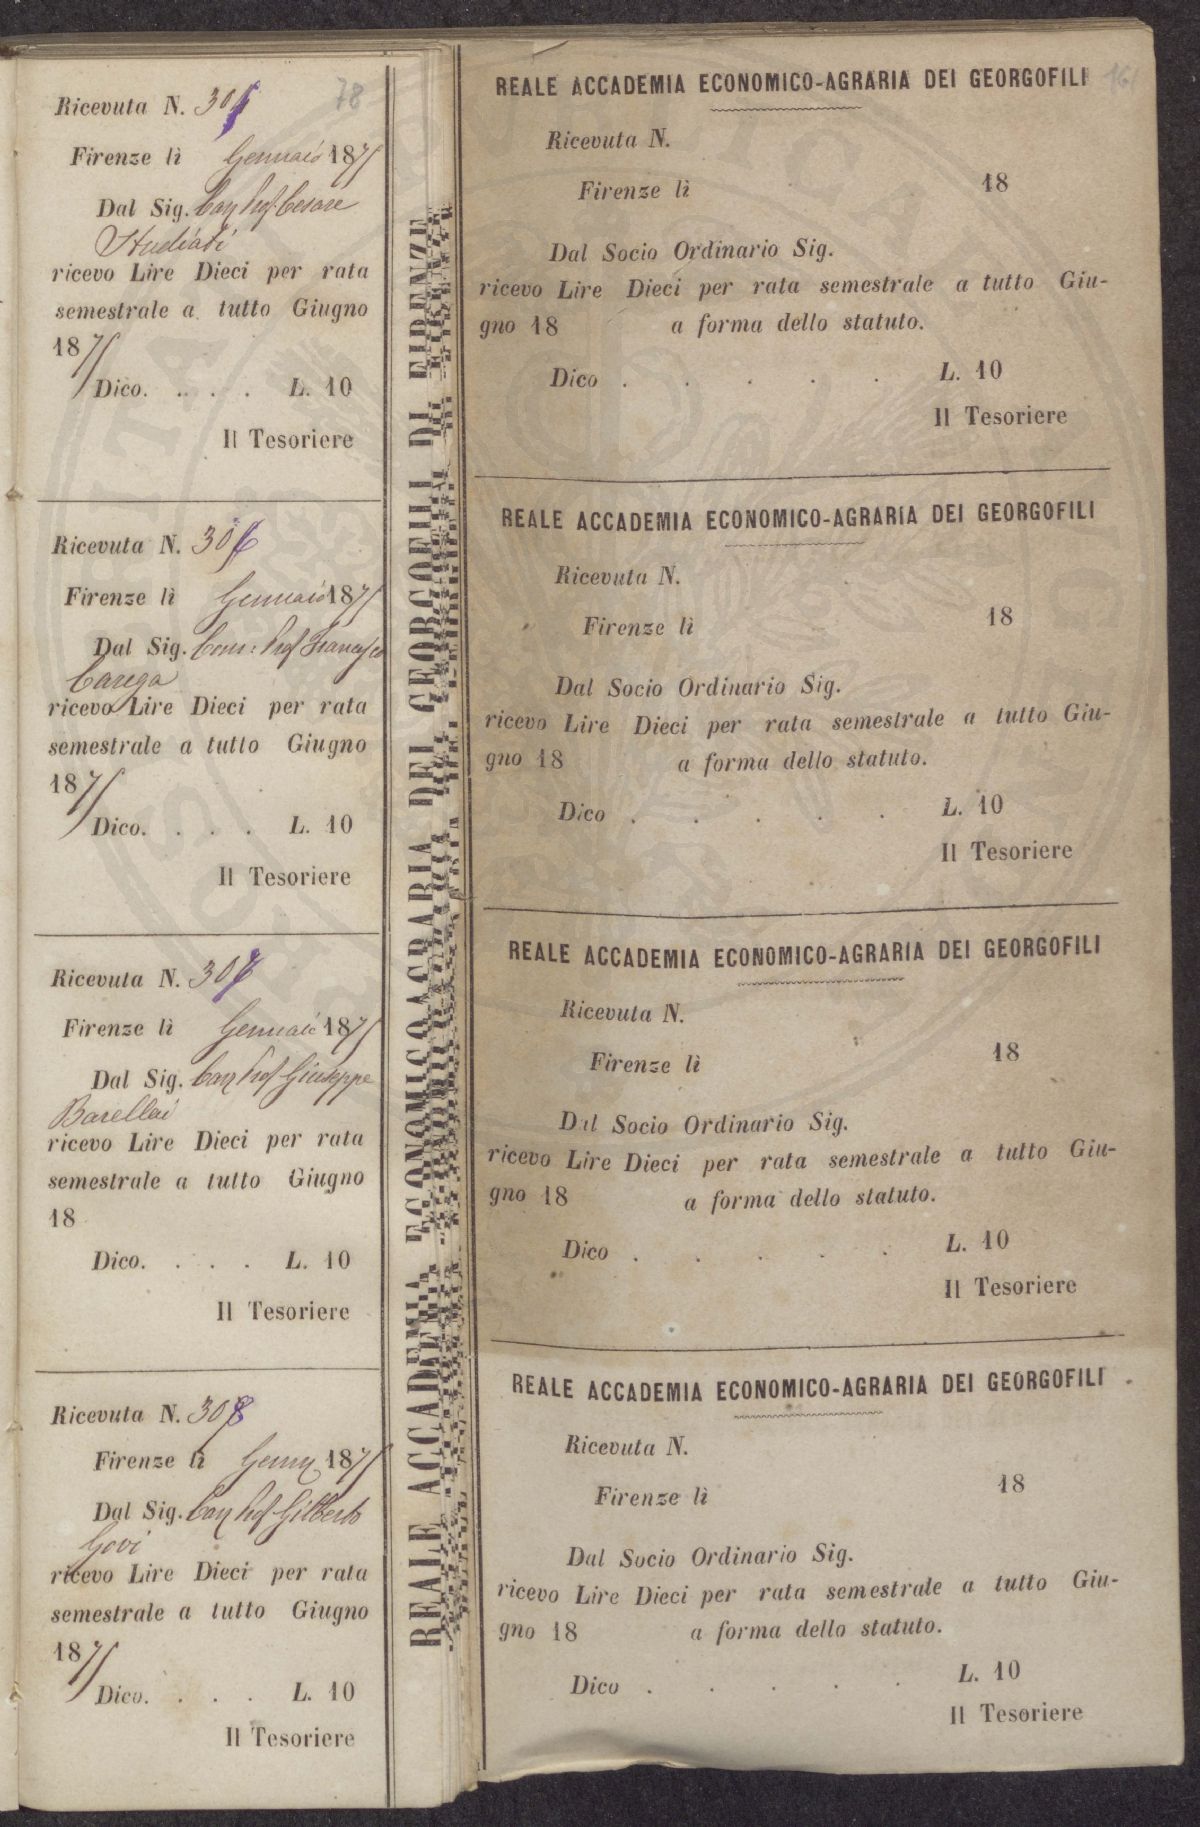 Ricevuta N. 305
78
Firenze lì Gennaio 1875
Dal Sig. Cav Prof. Cesare
Studiati
ricevo Lire Dieci per rata
semestrale a tutto Giugno
1875
Dico. . . . . L. 10
Il Tesoriere
Ricevuta N. 306
Firenze lì Gennaio 1875
Dal Sig. Com: Prof Francesco
Carega
ricevo Lire Dieci per rata
semestrale a tutto Giugno
1875
Dico. . . . L. 10
Il Tesoriere
Ricevuta N. 307
Firenze lì Gennaio 1875
Dal Sig. Cav Prof Giuseppe
Barellai
ricevo Lire Dieci per rata
semestrale a tutto Giugno
18
Dico. . . . L. 10
Il Tesoriere
Ricevuta N. 308
Firenze lì 1875
Dal Sig. Cav Prof Gilberto
Govi
ricevo Lire Dieci per rata
semestrale a tutto Giugno
1875
Dico. . . . L. 10
Il Tesoriere
REALE ACCADEMIA ECONOMICO-AGRARIA DEI GEORGOFILI DI FIRENZE
REALE ACCADEMIA ECONOMICO-AGRARIA DEI GEORGOFILI
Ricevuta N.
Firenze lì 18
Dal Socio Ordinario Sig.
ricevo Lire Dieci per rata semestrale a tutto Giu-
gno 18 a forma dello statuto.
Dico . . . . . L. 10
Il Tesoriere
REALE ACCADEMIA ECONOMICO-AGRARIA DEI GEORGOFILI
Ricevuta N.
Firenze lì 18
Dal Socio Ordinario Sig.
ricevo Lire Dieci per rata semestrale a tutto Giu-
gno 18 a forma dello statuto.
Dico . . . . . L. 10
Il Tesoriere
REALE ACCADEMIA ECONOMICO-AGRARIA DEI GEORGOFILI
Ricevuta N.
Firenze lì 18
Dal Socio Ordinario Sig.
ricevo Lire Dieci per rata semestrale a tutto Giu-
gno 18 a forma dello statuto.
Dico . . . . . L. 10
Il Tesoriere
REALE ACCADEMIA ECONOMICO-AGRARIA DEI GEORGOFILI
Ricevuta N.
Firenze lì 18
Dal Socio Ordinario Sig.
ricevo Lire Dieci per rata semestrale a tutto Giu-
gno 18 a forma dello statuto.
Dico . . . . . L. 10
Il Tesoriere